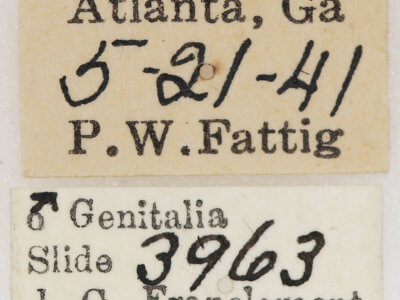 Atlanta, Ga
5-21-41
P.W. Fattig
♂ Genitalia
Slide 3963